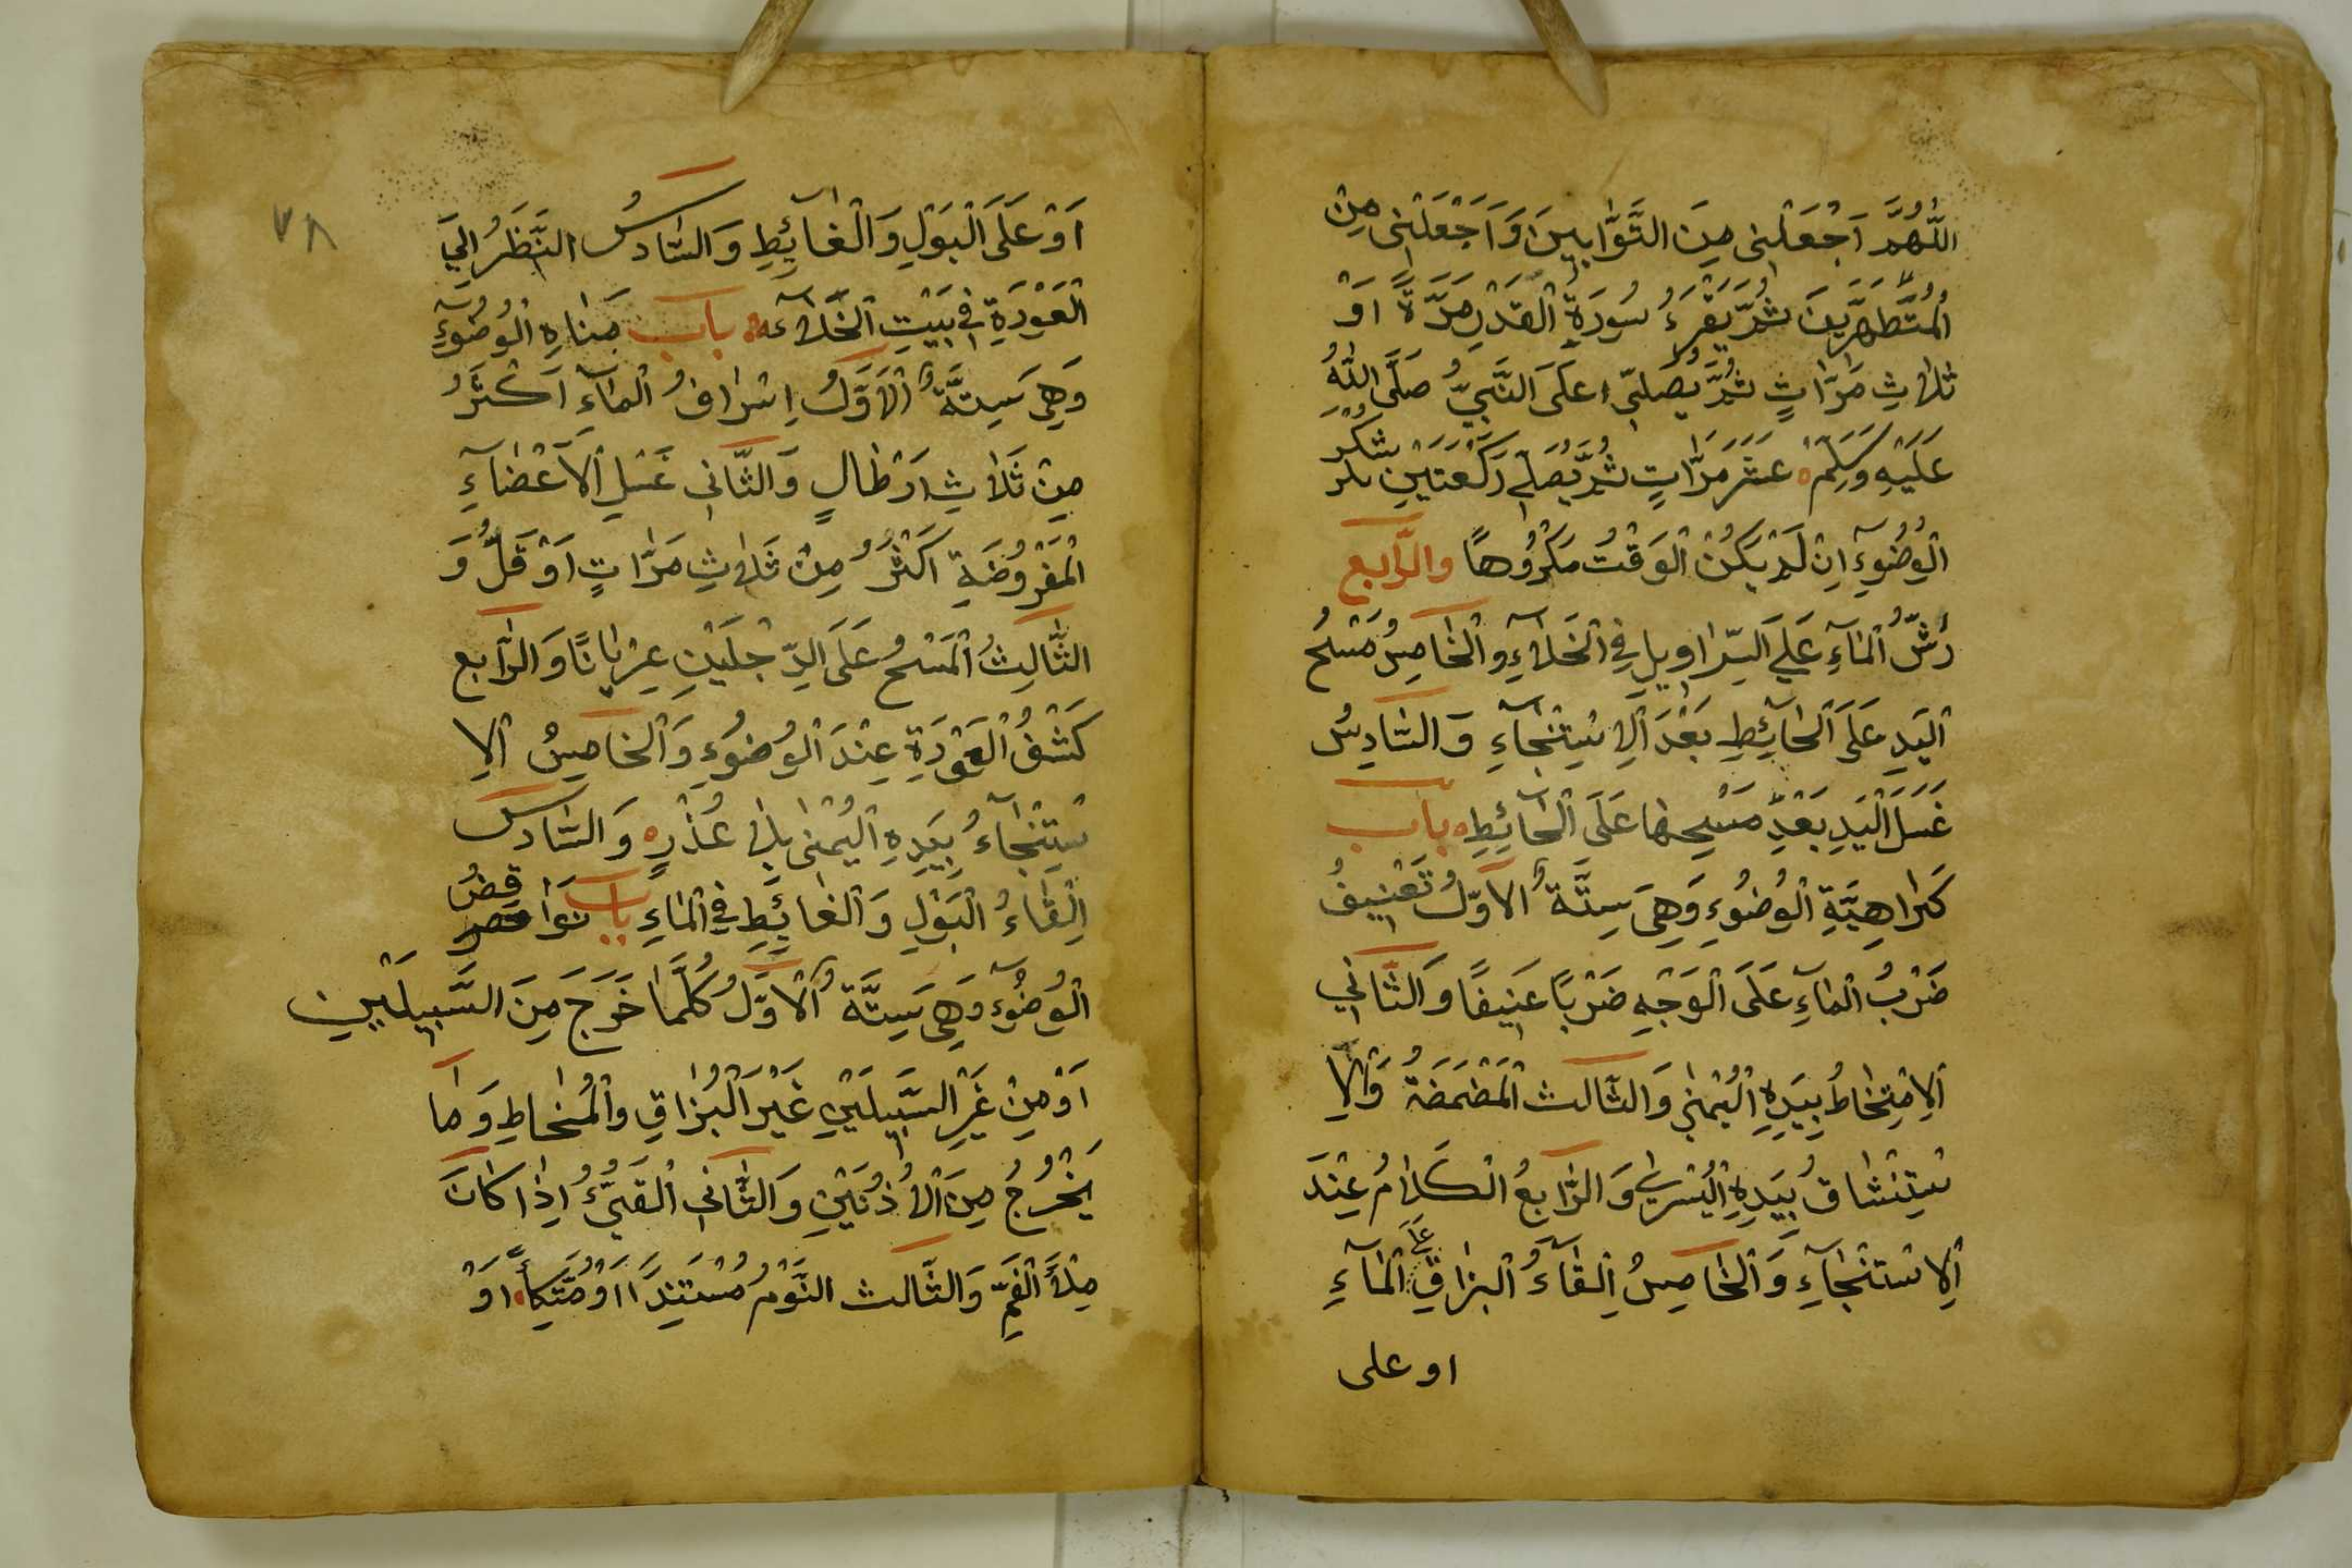 اللّٰهُمَّ اَجْعَلْنِى مِنَ التَّوَّابِينَ وَاَجْعَلْنِى مِنَ
الْمُتَطَهِّرِينَ ثُمَّ يَقْرَءُ سُورَةِ الْقَدْرِ مَرَّةً اَوْ
ثَلَاثِ مَرَّاتٍ ثُمَّ يُصَلِّى عَلَى النَّبِيِّ صَلَّى اللّٰهُ
عَلَيْهِ وَسَلَّمَ عَشَرَ مَرَّاتٍ ثُمَّ يُصَلِّي رَكْعَتَيْنِ شُكْرَ
الْوُضُوءِ اِنْ لَمْ يَكُنْ الْوَقْتُ مَكْرُوهًا وَالرَّابِع
رَشُّ الْمَآءِ عَلَي السِّرَاوِيلِ فِي الْخَلَاءِ وَالْخَامِسُ مَسْحُ
الْيَدِ عَلَى الْحَآئِطِ بَعْدَ الْاِسْتِنْجَآءِ وَالسَّادِسُ
غَسَلَ الْيَدِ بَعْدَ مَسْحِهَا عَلَى الْحَآئِطِ بَاب
كَرَاهِيَّةِ الْوُضُوءِ وَهِيَ سِتَّةٌ الْاَوَّلُ تَعْنِيفُ
ضَرْبُ الْمَآءِ عَلَى الْوَجْهِ ضَرْبًا عَنِيفًا وَالثَّانِي
الْاِمْتِخَاطُ بِيَدِهِ الْيُمْنٰى وَالثَّالث الْمَضْمَضَةُ وَالْاِ
سْتِنْشَاقُ بِيَدِهِ الْيُسْرٰي وَالرَّابِعُ الْكَلَامُ عِنْدَ
الْاِسْتِنْجَآءِ وَالْخَامِسُ اِلْقَآءُ الْبزَاقِ عَلَى الْمَآءِ
او على
٧٨
اَوْ عَلَى الْبَوْلِ وَالْغَآئِطِ وَالسَّادسُ النَّظَرُ اِلَي
الْعَوْرَةِ فِى بَيْتِ الْخَلَاءِ بَاب مَنَاهِ الْوُضُوءِ
وَهِيَ سِتَّةٌ الْاَوَّلُ اِسْرَافُ الْمَآءِ اَكْثَرُ
مِنْ ثَلَاثِ اَرْطَالٍ وَالثَّانِي غَسْلِ الْاَعْضَآءِ
الْمَفْرُوضَةِ اَكْثَرُ مِنْ ثَلَاثِ مَرَّاتٍ اَوْ قَلُّ وَ
الثَّالِثُ الْمَسْحُ عَلَى الرِّجْلَيْنِ عِرْيَانًا وَالرَّابع
كَشْفُ الْعَوْرَةِ عِنْدَ الْوُضُوءِ وَالْخَامِسُ الْاِ
سْتِنْجَآءُ بِيَدِهِ الْيُمْنٰى بِلَا عُذْرٍ وَالسَّادس
اِلْقَاءُ الْبَوْلِ وَالْغَائِطِ فِي الْمَاءِ بَاب نَوَاقِضُ
الْوُضُوءِ وَهِيَ سِتَّةٌ الْاَوَّلُ كُلَّمَا خَرَجَ مِنَ السَّبِيلَيْنِ
اَوْ مِنْ غَيْرِ السَّبِيلَيْنِ غَيْرَ الْبُزَاقِ وَالْمُخَاطِ وَمَا
يَخْرُجُ مِنَ الْاُذُنَيْنِ وَالثَّانِي الْقَيْءُ اِذَا كَانَ
مِلْأَ الْفَمِّ وَالثَّالث النَّوْمُ مُسْتَنِدًا اَوْ مُتَّكِأً اَوْ